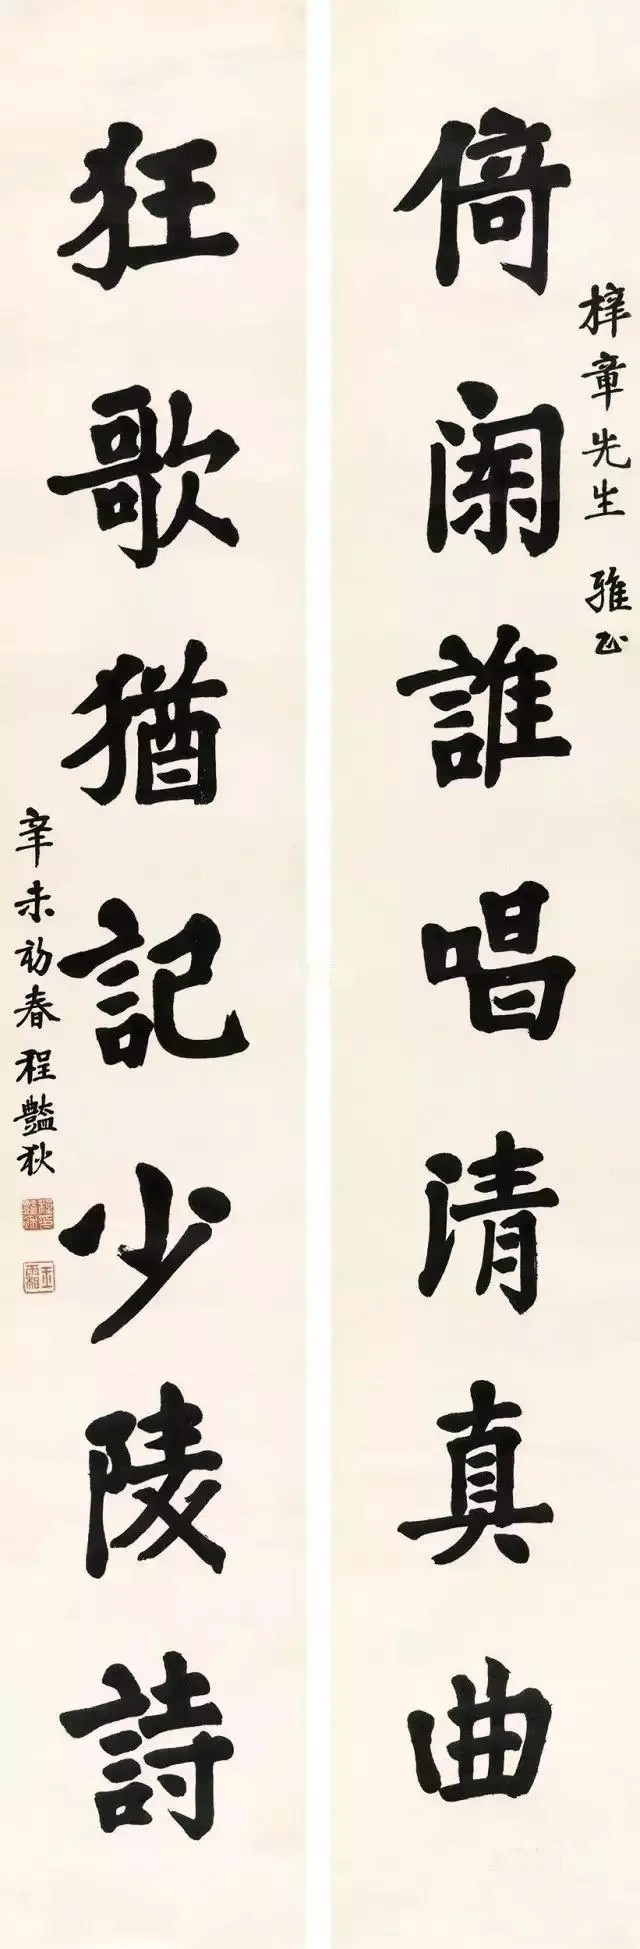 梓章先生 雅正
倚闌誰唱清真曲
狂歌猶記少陵詩
辛未初春程豔秋